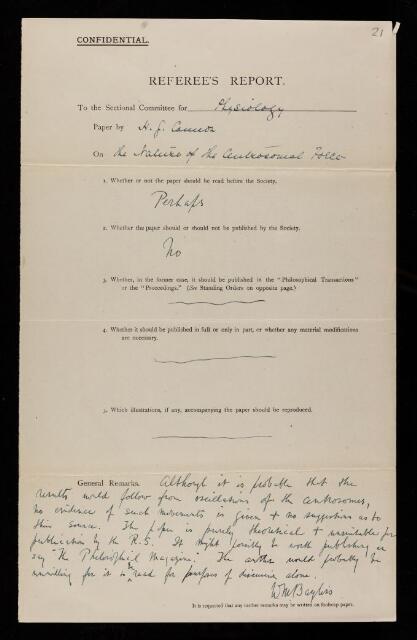 21
CONFIDENTIAL.
REFEREE'S REPORT.
To the Sectional Committee for Physiology
Paper by H. J.
On the Nature of the Centrosomal Force
1. Whether or not the paper should be read before the Society.
Perhaps
2. Whether the paper should or should not be published by the Society.
No
3. Whether, in the former case, it should be published in the "Philosophical Transactions"
or the "Proceedings." (See Standing Orders on opposite page.)
4. Whether it should be published in full or only in part, or whether any material modifications
are necessary.
5. Which illustrations, if any, accompanying the paper should be reproduced.
General Remarks. Although it is probable that the
results would follow from oscillations of the centrosomes,
no evidence of such movements is given & no suggestion as to
their source. The paper is purely theoretical & unsuitable for
publication by the R.S. It might possibly be worth publishing in
say "The Philosophical Magazine". The author would probably be
unwilling for it to be read for purposes of discussion alone.
W M Bayliss
It is requested that any further remarks may be written on foolscap paper.